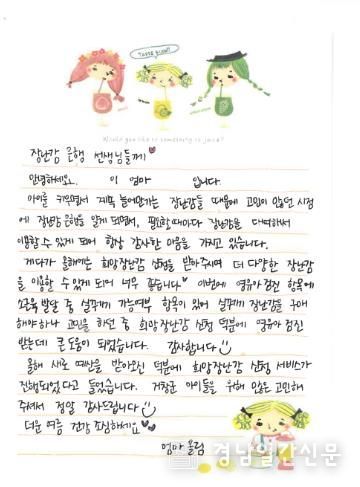 TASTE GOOD!
Would you like to something to juice?
장난감 은행 선생님들께♥
안녕하세요. 이 엄마 입니다.
아이를 키우면서 계속 늘어만가는 장난감들 때문에 고민이 많던 시점
에 장난감 은행을 알게 되면서, 필요할때마다 장난감을 대여해서
이용할 수 있게 되어 항상 감사한 마음을 가지고 있습니다.
게다가 올해에는 희망장난감 신청을 받아주시며 더 다양한 장난감
을 이용할 수 있게 되어 너무 좋습니다! 이번에 영유아검진 항목에
소근육 발달 중 실꿰기 가능여부 항목이 있어 실꿰기 장난감을 구매
해야하나 고민을 하던 중 희망장난감 신청 덕분에 영유아 검진
받는데 큰 도움이 되었습니다. 감사합니다
올해 새로 예산을 받아오신 덕분에 희망장난감 신청 서비스가
진행되었다고 들었습니다. 거창군 아이들을 위해 많은 고민해
주셔서 정말 감사드립니다
더운 여름 건강 조심하세요♥
엄마 올림
경남일간신문